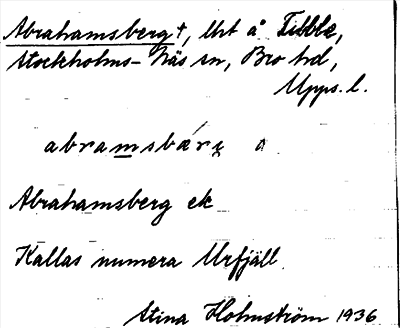 Abrahamsberg†, lht å Tibble,
Stockholms-Näs sn, Bro hd,
Upps. l.
abramsbárj a
Abrahamsberg ek
Kallas numera Urfjäll.
Stina Holmström 1936